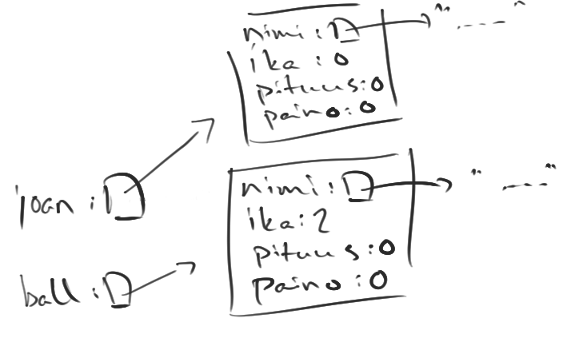 nimi: → "....."
ika: 0
pituus: 0
paino: 0
joan:
nimi: → "....."
ika: 2
pituus: 0
paino: 0
ball: